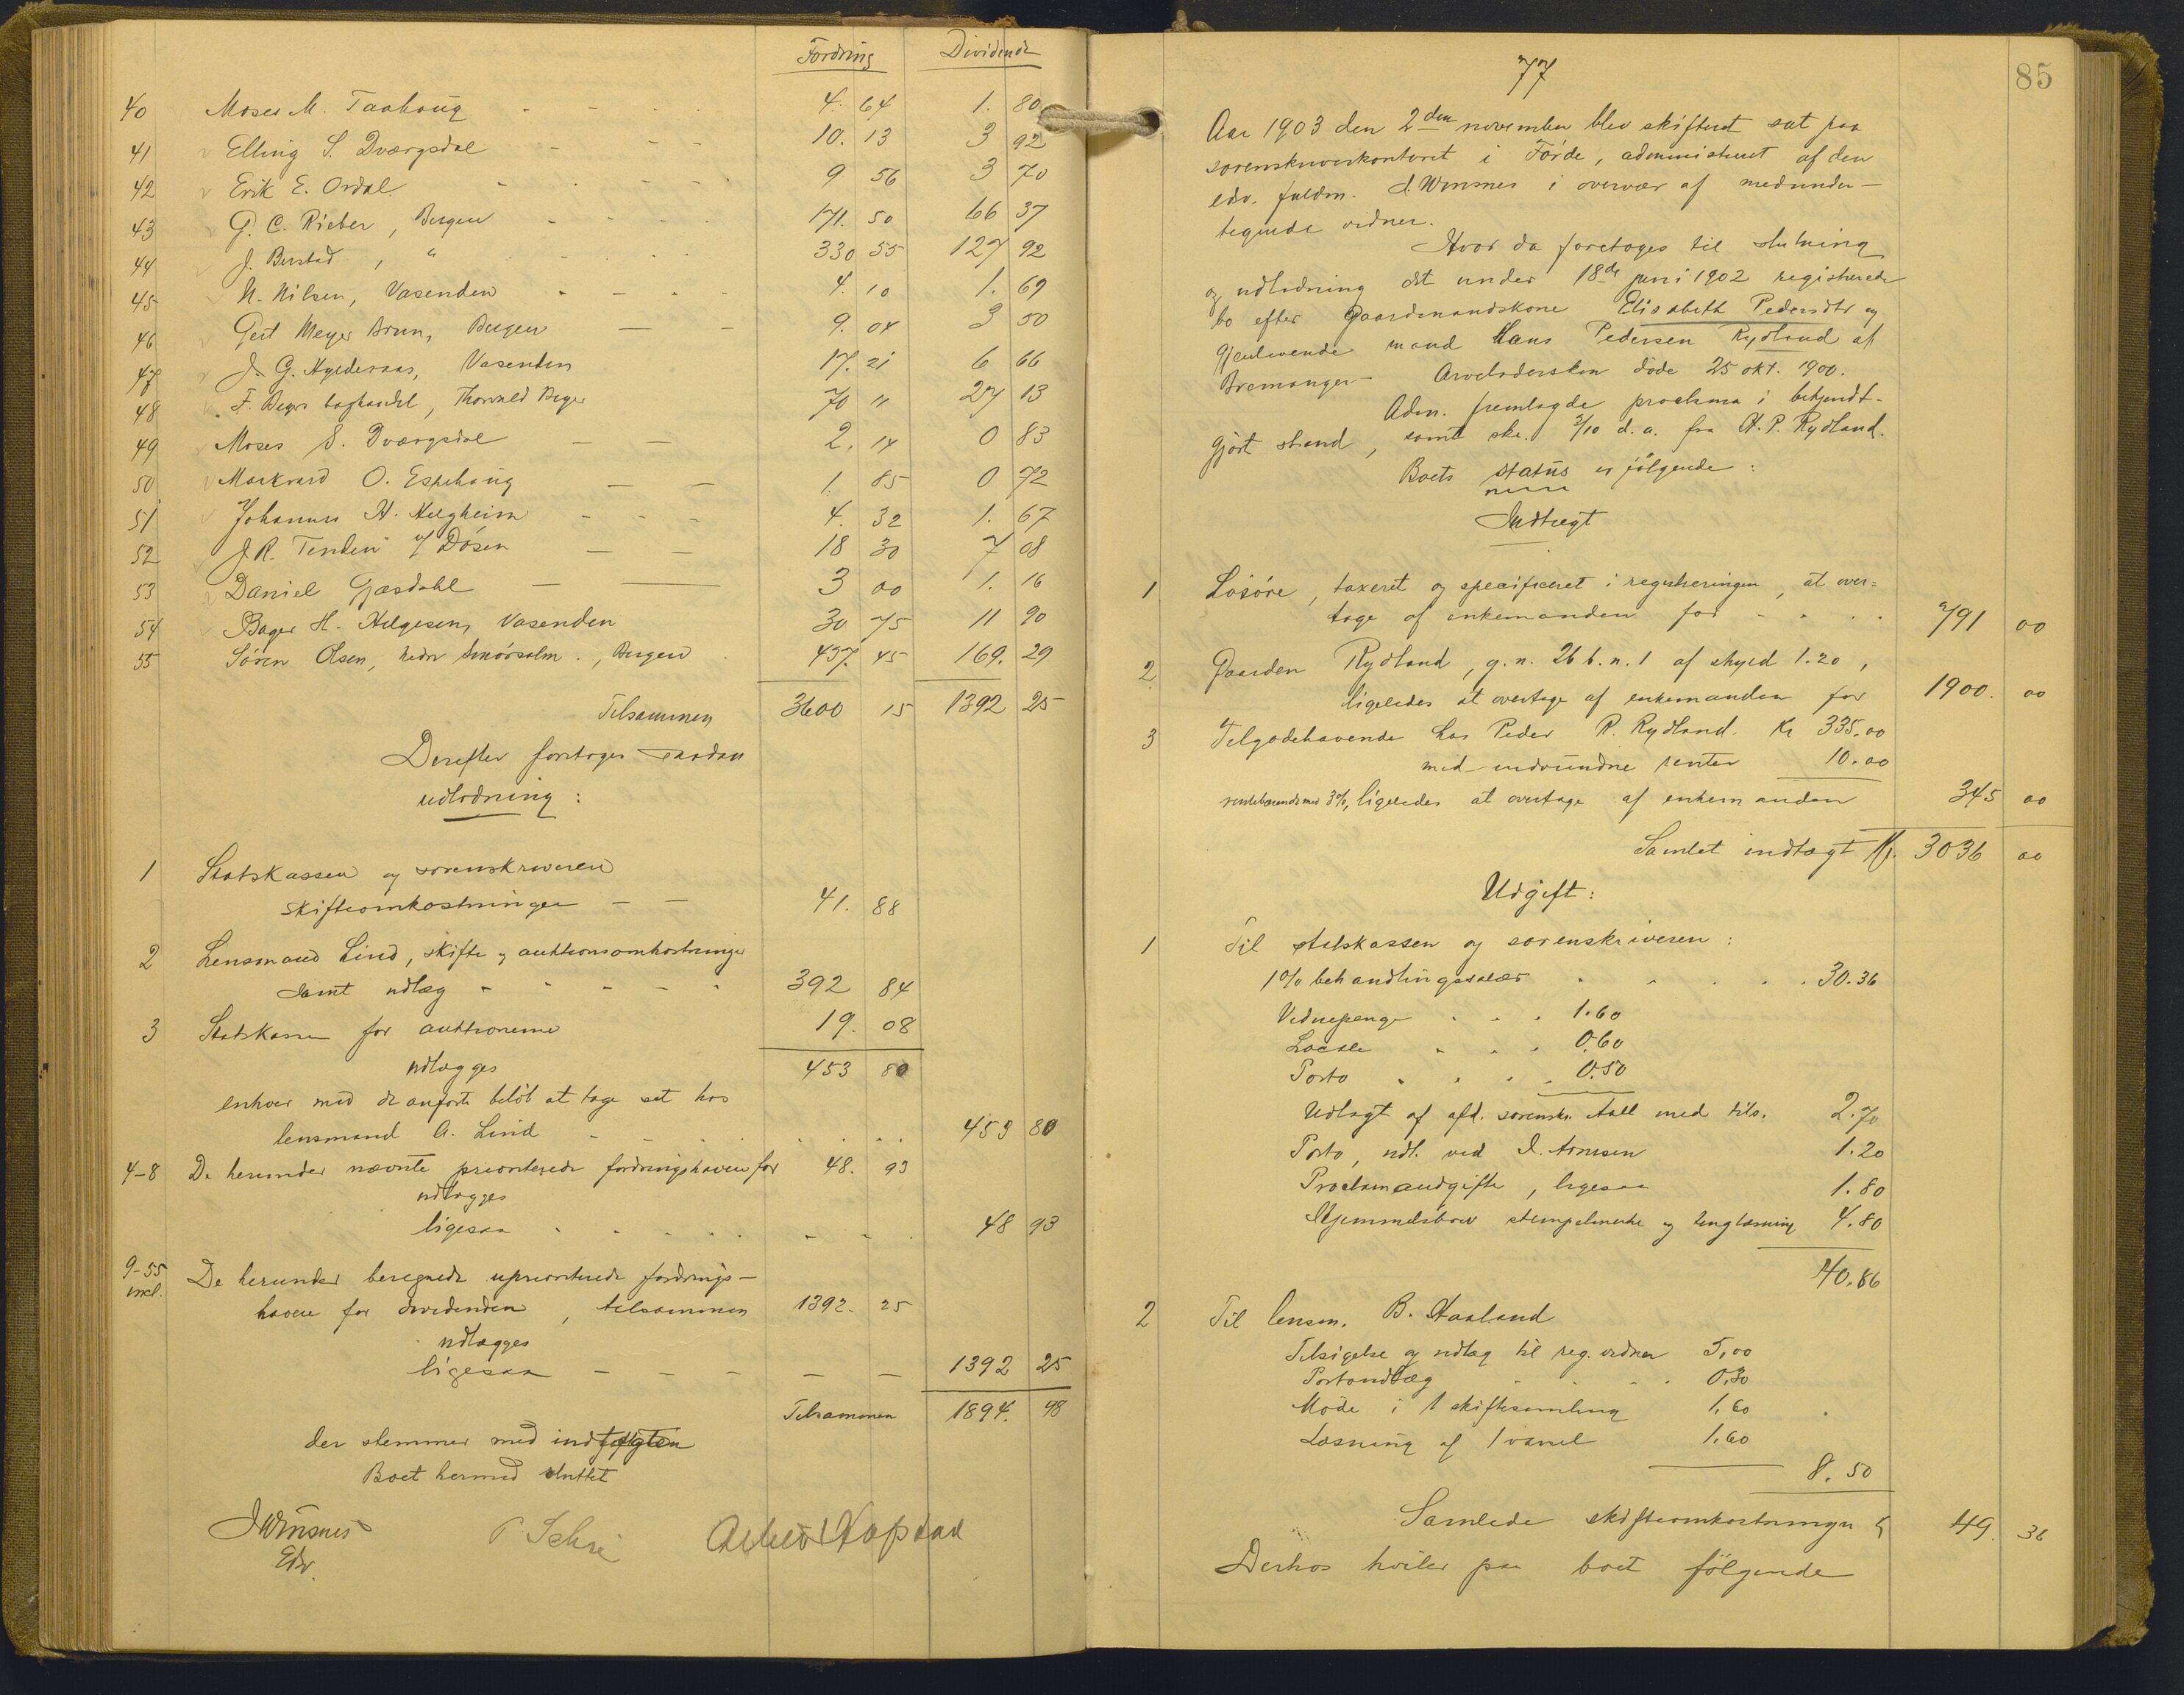 Fordring Dividende
40 Moses M. Taahaug 4. 64 1. 80
41 Elling S. Dvergsdal 10. 13 3 92
42 Erik E. Ordal 9 56 3 70
43 G. C. Rieber, Bergen 171. 50 66 37
44 J. Berstad, " 330 55 127 92
45 N. Nilsen, Vasenden 4. 10 1. 69
46 Gert Meyer Brun, Bergen 9. 04 3 50
47 J. G. Vasenden 17. 21 6 66
48 F. Beyer boghandel, Thorvald Beyer 70 11 27 13
49 Moses S. Dvergsdal 2. 14 0 83
50 Markvard O. Espehaug 1. 85 0 72
51 Johannes H. Helgheim 4. 32 1. 67
52 J. R. Tenden Døsen 18 30 7 08
53 Daniel Gjesdahl 3 00 1. 16
54 Bager H. Helgesen, Vasenden 30 75 11 90
55 Søren Olsen, Smørsalm., Bergen 437. 45 169. 29
Tilsammen 3600 15 1392 25
Derefter foretoges saadan
udlodning:
1 Statskassen og sorenskriveren
skifteomkostninger 41. 88
2 Lensmand Lind, skifte og auktionsomkostninger
samt udlæg 392 84
3 Statskassen for auktionerne 19. 08
udlægges 453 80
enhver med de anførte beløb at tage ret hos
lensmand A. Lind 453 80
4-8 De herunder nævnte prioriterede fordringshavere for 48. 93
udlægges
ligesaa 48 93
9-55 De herunder beregnede uprioriterede fordrings-
incl. havere for dividenden, tilsammen 1392. 25
udlægges
ligesaa 1392 25
Tilsammen 1894. 98
der stemmer med indtægten
Boet hermed sluttet
J Winsnes
Edv.
77
85
Aar 1903 den 2den november blev skifteret sat paa
sorenskriverkontoret i Førde, administreret af den
edsv. fuldm. J. Winsnes i overvær af medunder-
tegnede vidner.
Hvor da foretoges til slutning
og udlodning det under 18de juni 1902 registrerede
bo efter gaardmandskone Elisabeth Pedersdtr og
gjenlevende mand Hans Pedersen Rydland af
Bremanger. Arveladersken døde 25 okt. 1900.
Adm. fremlagde proclama i bekjendt-
gjort stand, samt skr. 2/10 d.a. fra H. P. Rydland.
Boets status er følgende:
Indtægt
1 Løsøre, taxeret og specificeret i registreringen, at over=
tage af enkemanden for 791 00
2 Gaarden Rydland, g.n. 26 b.n. 1 af skyld 1.20,
ligeledes at overtage af enkemanden for 1900. 00
3 Tilgodehavende hos Peder P. Rydland. Kr 335,00
med indvundne renter 10.00
rentebærende med 3%, ligeledes at overtage af enkemanden 345 00
Samlet indtægt Kr. 3036 00
Udgift:
1 Til statskassen og sorenskriveren:
1% behandlingssalær 30.36
Vidnepenge 1.60
Locale 0.60
Porto 0.50
Udlagt af afd. sorenskr. Aall med tils. 2.70
Porto, udl. ved 1.20
Proclamaudgifter, ligesaa 1.80
Hjemmelsbrev stempelmerke og tinglæsning 4.80
40.86
2 Til lensm. B. Haaland
Tilsigelse og udlæg til reg. vidner 5,00
Portoudlæg 0.30
Møde i 1 skiftesamling 1.60
Læsning af 1 varsel 1.60
8.50
Samlede skifteomkostninger 49. 36
Derhos hviler paa boet følgende